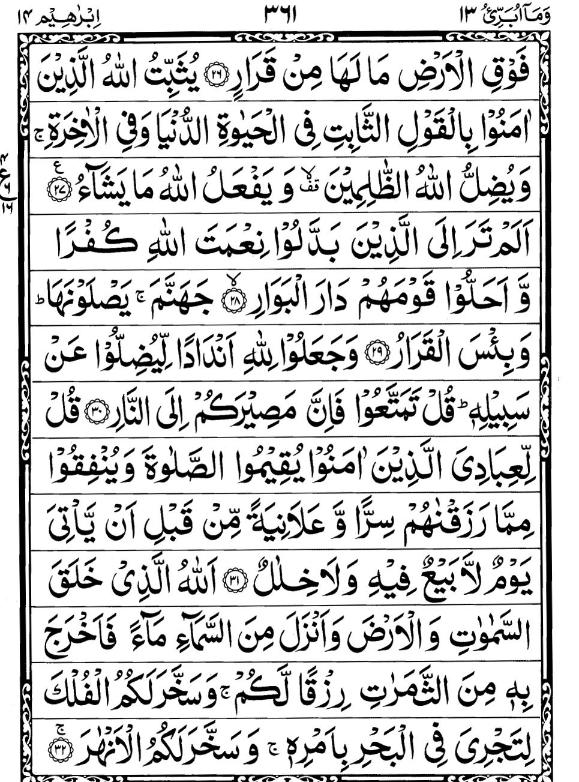 وَمَآ اُبَرِّئُ ١٣ ٣٦١ اِبْرٰهِيْم ١٤
فَوْقِ الْاَرْضِ مَا لَهَا مِنْ قَرَارٍ ﴿٢٦﴾ يُثَبِّتُ اللّٰهُ الَّذِيْنَ
اٰمَنُوْا بِالْقَوْلِ الثَّابِتِ فِى الْحَيٰوةِ الدُّنْيَا وَفِى الْاٰخِرَةِ ۚ
وَيُضِلُّ اللّٰهُ الظّٰلِمِيْنَ ۙ قف وَ يَفْعَلُ اللّٰهُ مَا يَشَآءُ ﴿٢٧﴾ ع
٤ ع ٦ ١٦
اَلَمْ تَرَ اِلَى الَّذِيْنَ بَدَّلُوْا نِعْمَتَ اللّٰهِ كُفْرًا
وَّ اَحَلُّوْا قَوْمَهُمْ دَارَ الْبَوَارِ ﴿٢٨﴾ ۙ جَهَنَّمَ ۚ يَصْلَوْنَهَا ؕ
وَ بِئْسَ الْقَرَارُ ﴿٢٩﴾ وَجَعَلُوْا لِلّٰهِ اَنْدَادًا لِّيُضِلُّوْا عَنْ
سَبِيْلِهٖ ؕ قُلْ تَمَتَّعُوْا فَاِنَّ مَصِيْرَكُمْ اِلَى النَّارِ ﴿٣٠﴾ قُلْ
لِّعِبَادِىَ الَّذِيْنَ اٰمَنُوْا يُقِيْمُوا الصَّلٰوةَ وَيُنْفِقُوْا
مِمَّا رَزَقْنٰهُمْ سِرًّا وَّ عَلَانِيَةً مِّنْ قَبْلِ اَنْ يَّاْتِىَ
يَوْمٌ لَّا بَيْعٌ فِيْهِ وَ لَا خِلٰلٌ ﴿٣١﴾ اَللّٰهُ الَّذِىْ خَلَقَ
السَّمٰوٰتِ وَ الْاَرْضَ وَاَنْزَلَ مِنَ السَّمَآءِ مَآءً فَاَخْرَجَ
بِهٖ مِنَ الثَّمَرٰتِ رِزْقًا لَّكُمْ ۚ وَسَخَّرَ لَكُمُ الْفُلْكَ
لِتَجْرِىَ فِى الْبَحْرِ بِاَمْرِهٖ ۚ وَ سَخَّرَ لَكُمُ الْاَنْهٰرَ ﴿٣٢﴾ ۚ